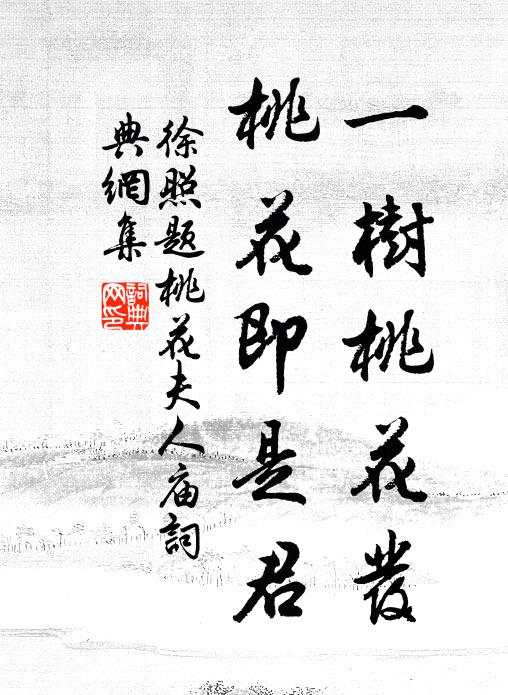 一樹桃花發
桃花即是君
徐照題桃花夫人庙詞
典網集
詞典
网印